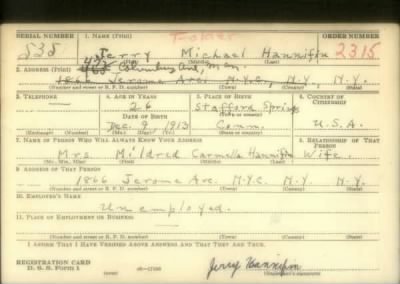 SERIAL NUMBER 1. NAME (Print) ORDER NUMBER
538 Jerry Michael Hannifin 2315
(First) (Middle) (Last)
2. ADDRESS (Print) Columbus Ave, Man.
1866 Jerome Ave. N.Y.C., N.Y., N.Y.
(Number and street or R. F. D. number) (Town) (County) (State)
3. TELEPHONE 4. AGE IN YEARS 5. PLACE OF BIRTH 6. COUNTRY OF CITIZENSHIP
26 Stafford Springs
DATE OF BIRTH (Town or county)
Dec. 9 1913 Conn. U.S.A.
(Exchange) (Number) (Mo.) (Day) (Yr.) (State or country)
7. NAME OF PERSON WHO WILL ALWAYS KNOW YOUR ADDRESS 8. RELATIONSHIP OF THAT PERSON
Mrs Mildred Carmella Hannifin Wife
(Mr., Mrs., Miss) (First) (Middle) (Last)
9. ADDRESS OF THAT PERSON
1866 Jerome Ave. N.Y.C. N.Y. N.Y.
(Number and street or R. F. D. number) (Town) (County) (State)
10. EMPLOYER'S NAME
Unemployed.
11. PLACE OF EMPLOYMENT OR BUSINESS
(Number and street or R. F. D. number) (Town) (County) (State)
I AFFIRM THAT I HAVE VERIFIED ABOVE ANSWERS AND THAT THEY ARE TRUE.
REGISTRATION CARD
D. S. S. Form 1 Jerry Hannifin
(Registrant's signature)